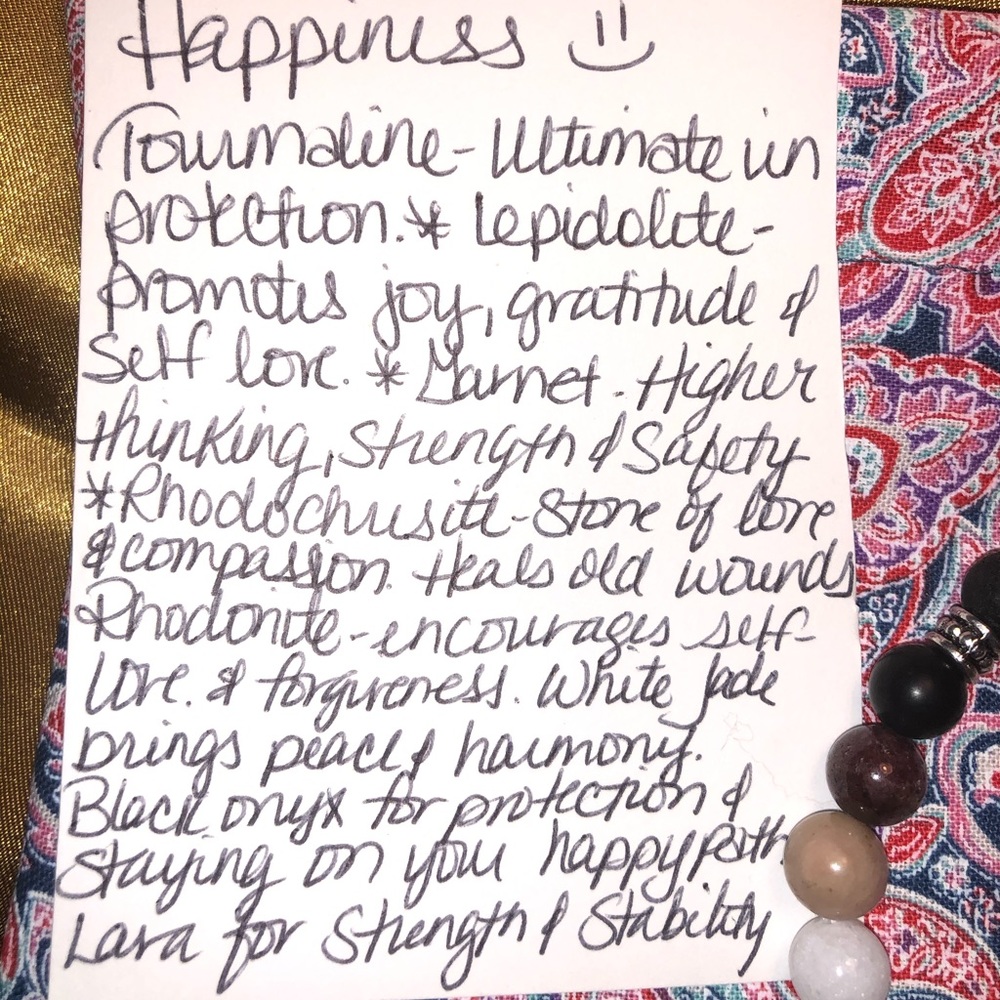 Happiness
Tourmaline - Ultimate in
protection. * Lepidolite -
promotes joy, gratitude &
Self love. * Garnet - Higher
thinking, Strength & Safety
* Rhodochrusite - Stone of love
& compassion. Heals old wounds
Rhodonite - encourages self-
Love. & forgiveness. White Jade
brings peace & harmony.
Black onyx for protection &
Staying on your happy path.
Lava for Strength & Stability